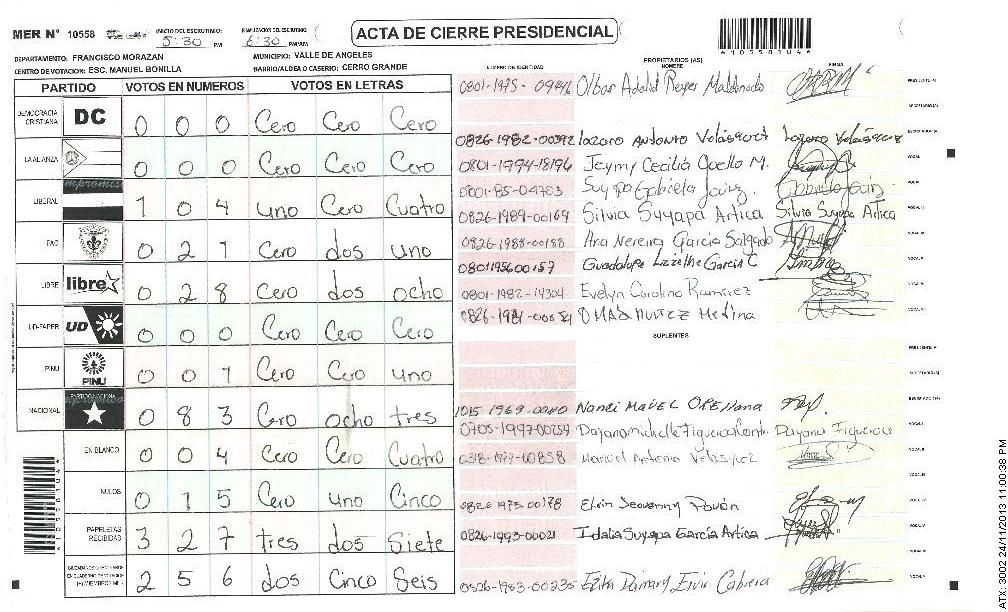 MER N° 10558
INICIO DEL ESCRUTINIO: 5:30 PM
FINALIZACION DEL ESCRUTINIO: 6:30 PM/AM
ACTA DE CIERRE PRESIDENCIAL
DEPARTAMENTO: FRANCISCO MORAZAN
MUNICIPIO: VALLE DE ANGELES
CENTRO DE VOTACION: ESC. MANUEL BONILLA
BARRIO/ALDEA O CASERIO: CERRO GRANDE
PARTIDO VOTOS EN NUMEROS VOTOS EN LETRAS
DEMOCRACIA CRISTIANA DC 0 0 0 Cero Cero Cero
LA ALIANZA 0 0 0 Cero Cero Cero
LIBERAL 1 0 4 uno Cero Cuatro
PAC 0 2 1 Cero dos uno
LIBRE libre 0 2 8 Cero dos ocho
UD-FAPER UD 0 0 0 Cero Cero Cero
PINU PINU 0 0 1 Cero Cero uno
NACIONAL 0 8 3 Cero ocho tres
EN BLANCO 0 0 4 Cero Cero Cuatro
NULOS 0 1 5 Cero uno Cinco
PAPELETAS RECIBIDAS 3 2 7 tres dos Siete
2 5 6 dos Cinco Seis
10558104
NUMERO DE IDENTIDAD
PROPIETARIOS (AS)
NOMBRE
FIRMA
Olbar Adalid Reyes Maldonado
0826-1982-00392 Lazaro Antonio Velásquez
0801-1994-18196 Jeymy Cecilia Coello M.
0801-85-04703 Suyapa Gabriela
0826-1989-00169 Silvia Suyapa Artica Silvia Suyapa Artica
0826-1988-00188 Nereira Garcia Salgado
0801195600157 Guadalupe Lizzethe Garcia C
0801-1982-14304 Evelyn Carolina Ramirez
Medina
SUPLENTES
Nanci Mavel Orellana
0705-1997-00254 Dayana Figueroa
0318-1977-00858 Manuel Antonio Velasquez
0820 1975-00178 Elvin Jeovanny Pavón
0826-1993-00021 Idalia Suyapa Garcia Artica
Cabrera
ATX-3002 24/11/2013 11:00:38 PM